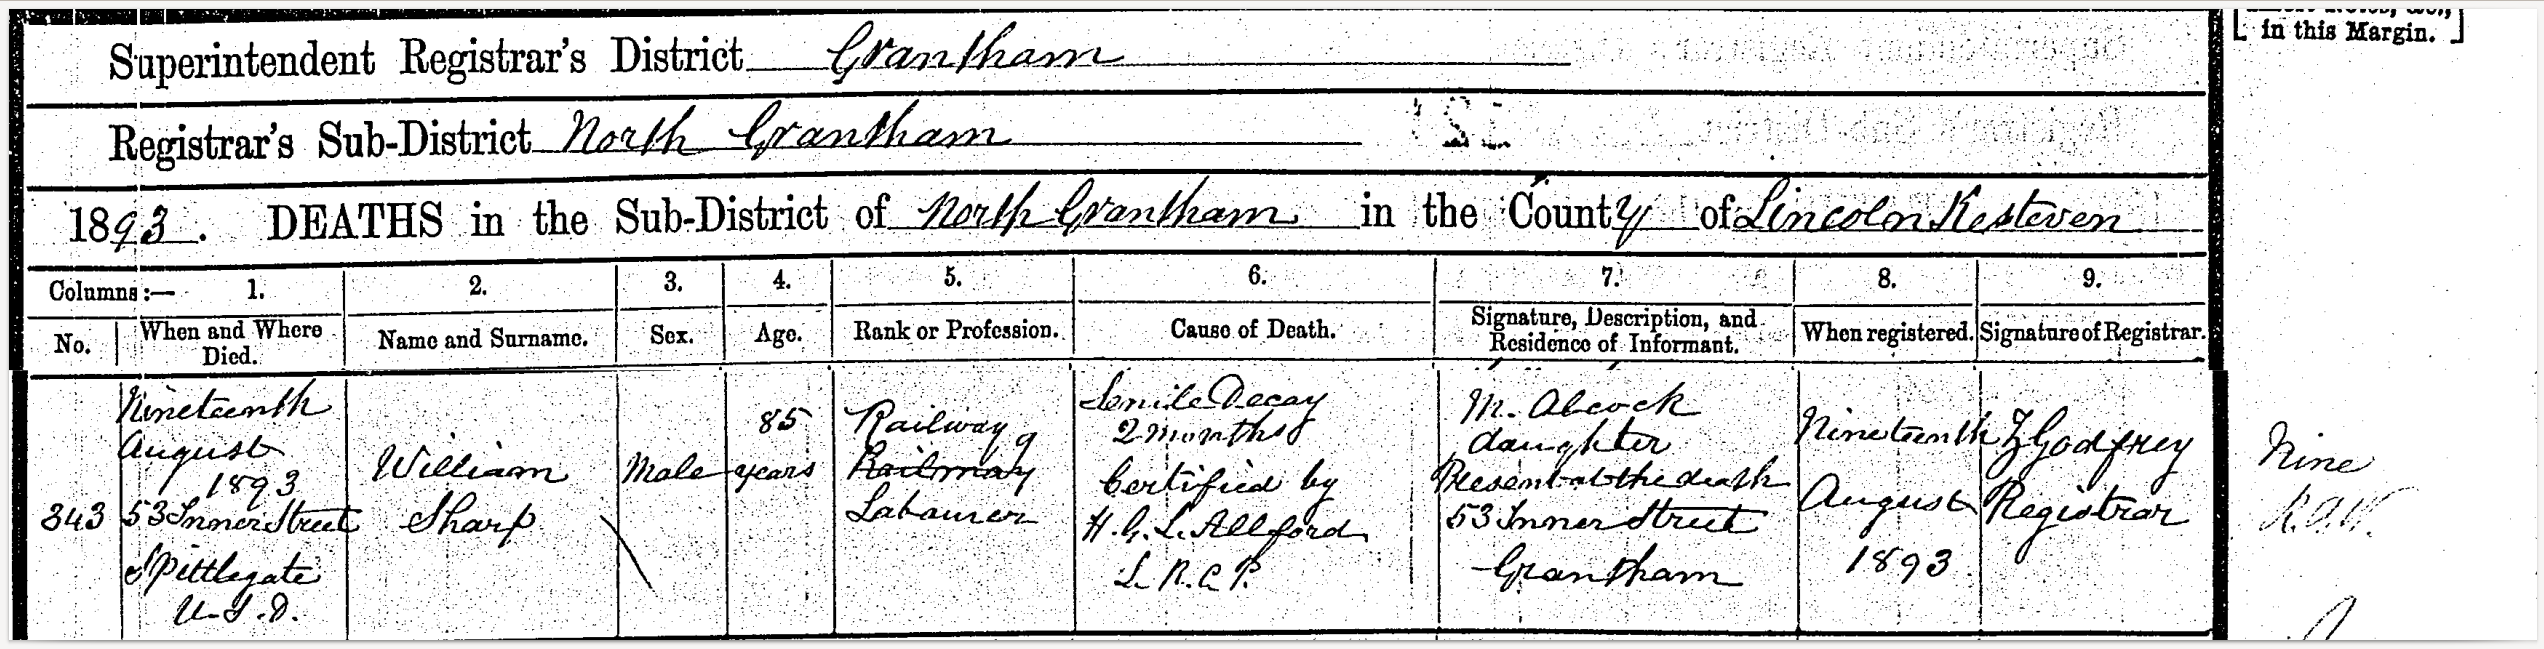 Superintendent Registrar's District Grantham
Registrar's Sub-District North Grantham
1893. DEATHS in the Sub-District of North Grantham in the County of Lincoln Kesteven
in this Margin.
Columns :— 1. 2. 3. 4. 5. 6. 7. 8. 9.
No.
When and Where
Died.
Name and Surname.
Sex.
Age.
Rank or Profession.
Cause of Death.
Signature, Description, and
Residence of Informant.
When registered.
Signature of Registrar.
343
Nineteenth
August
1893
53 Inner Street
Spittlegate
U.S.D.
William
Sharp
Male
85
years
Railway 9
Railway
Labourer
Senile Decay
2 months
Certified by
H. G. L. Allford
L R.C P.
M. Alcock
daughter
Present at the death
53 Inner Street
Grantham
Nineteenth
August
1893
Godfrey
Registrar
Nine